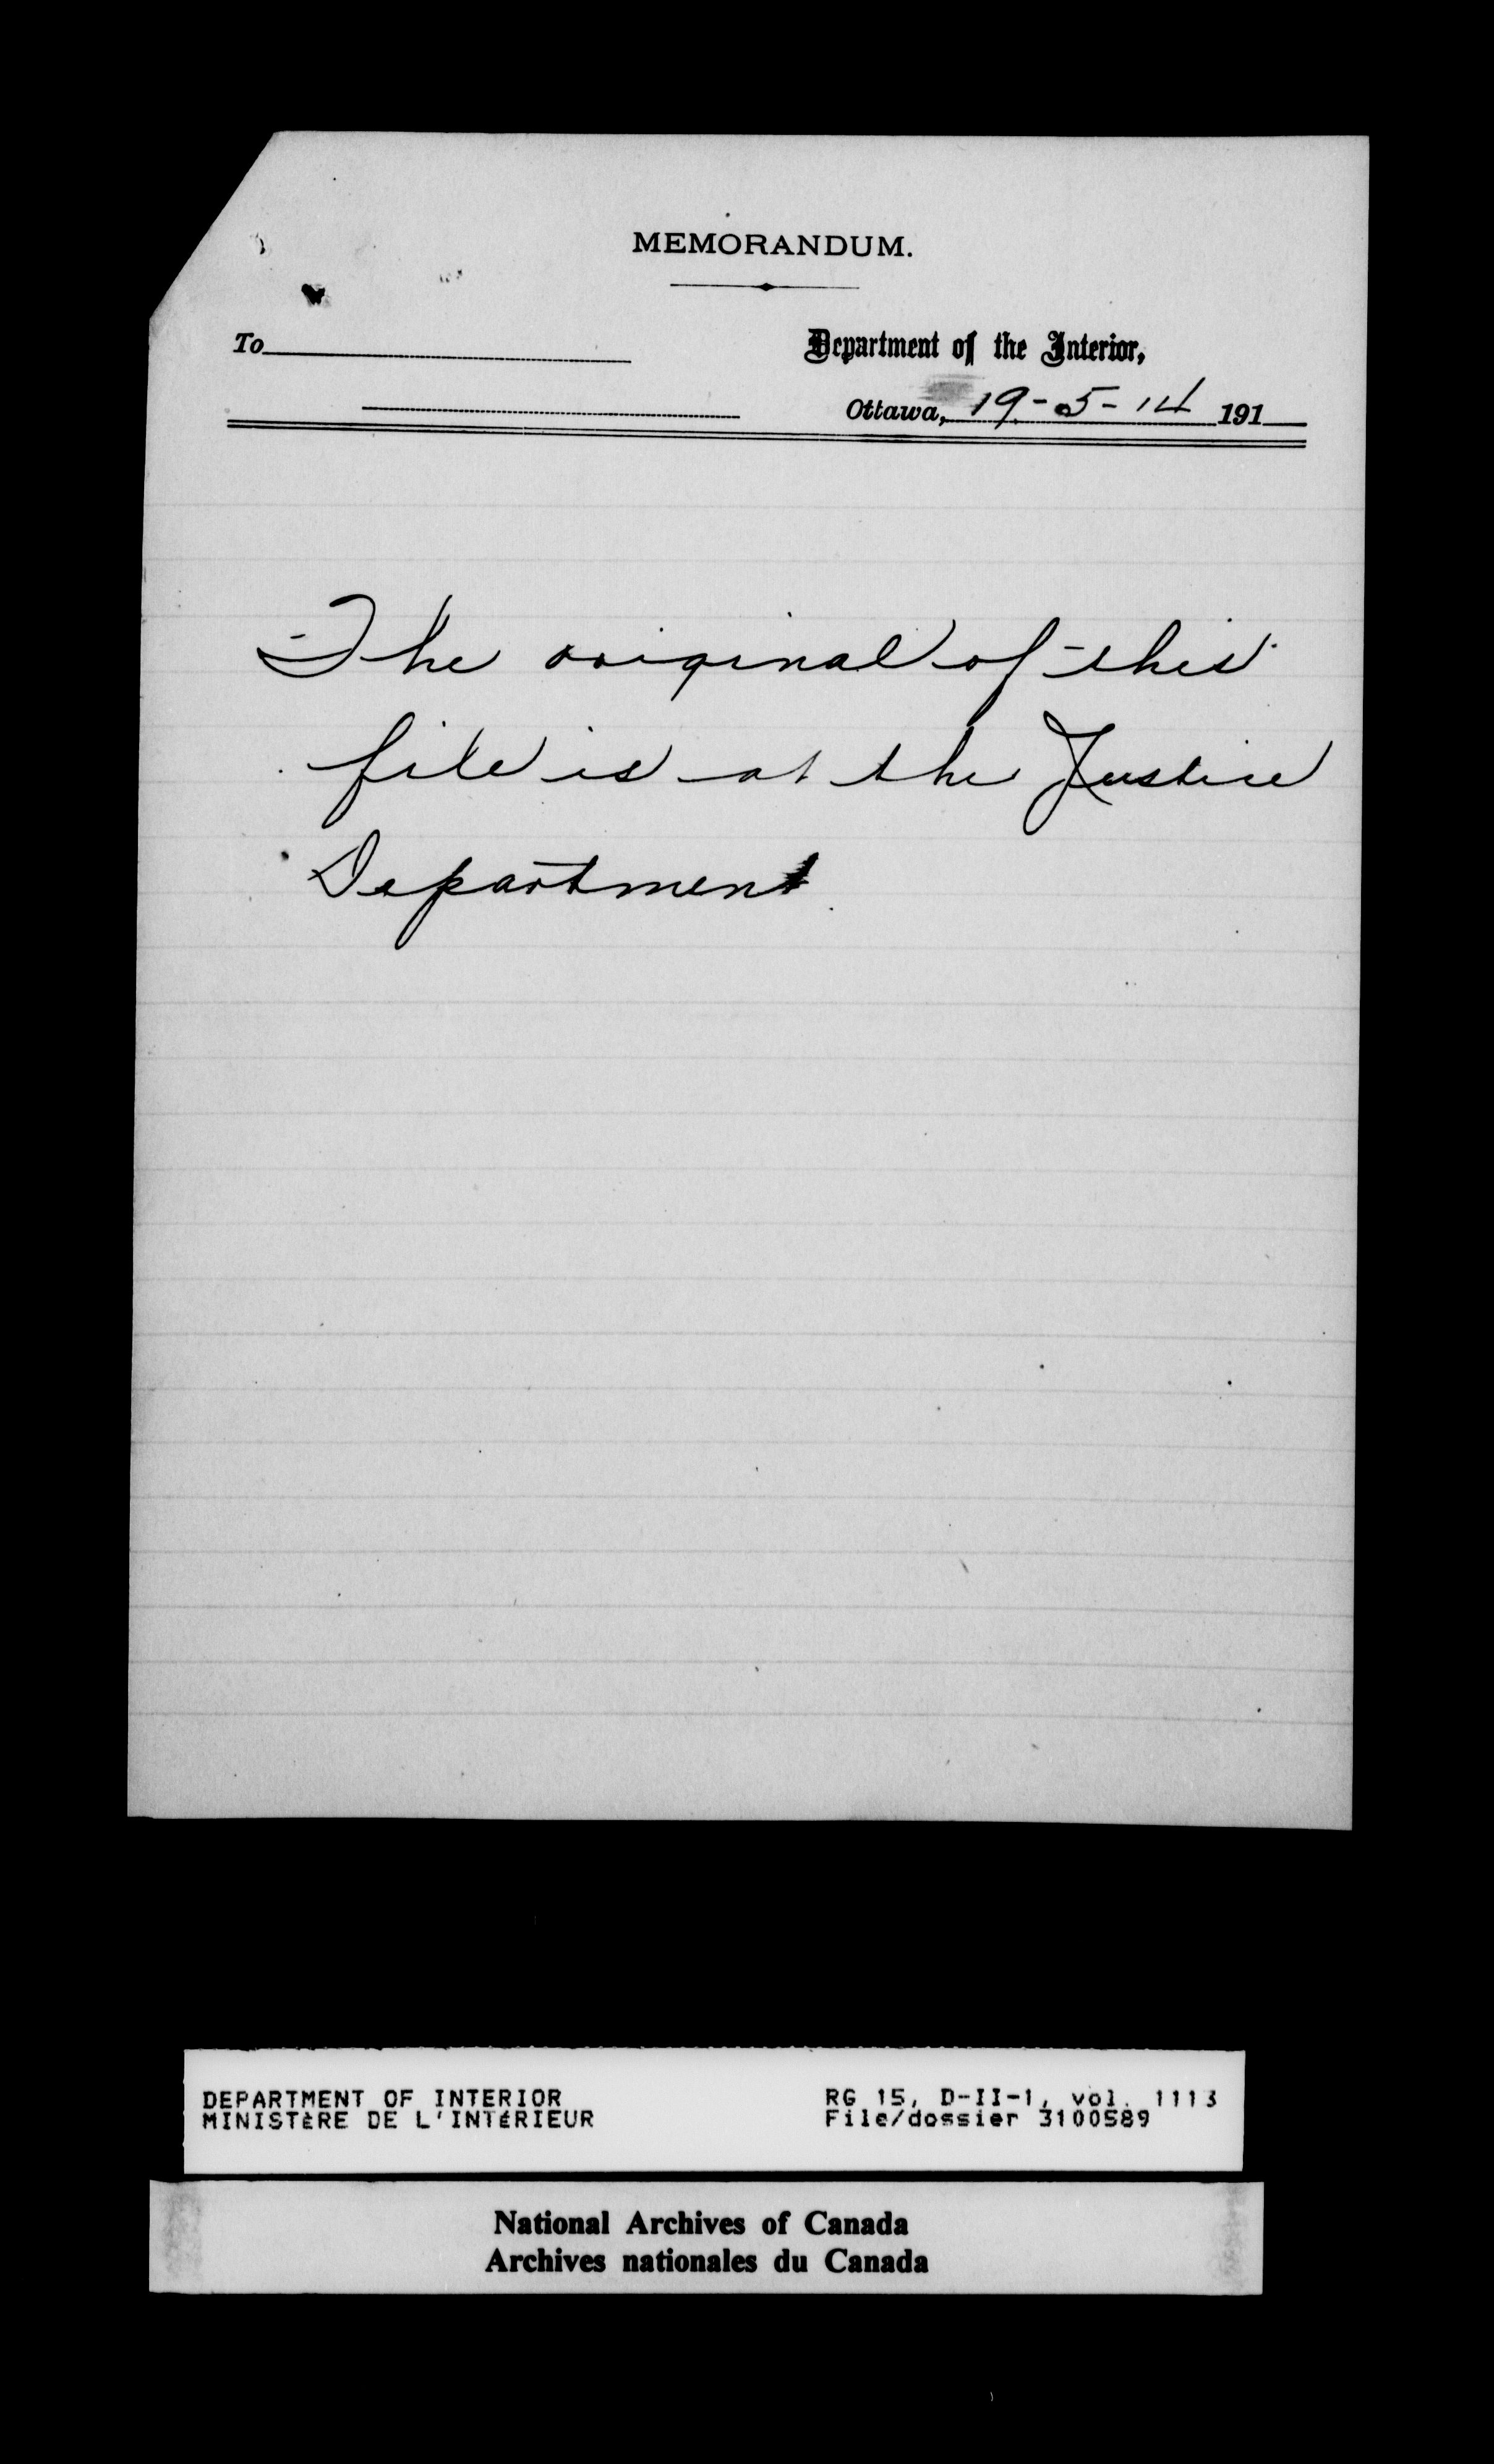 MEMORANDUM.
To
Department of the Interior,
Ottawa, 19-5-14 191
The original of this
file is at the Justice
Department
DEPARTMENT OF INTERIOR
MINISTÈRE DE L'INTÉRIEUR
RG 15, D-II-1, vol. 1113
File/dossier 3100589
National Archives of Canada
Archives nationales du Canada